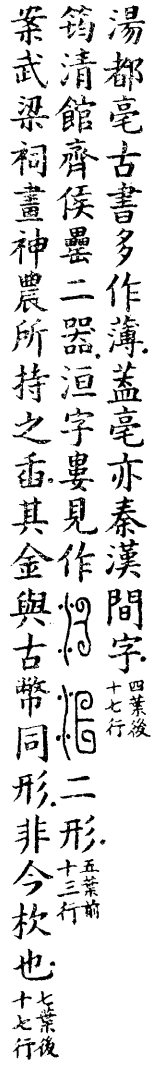 湯都亳古書多作薄.葢亳亦秦漢間字.四葉後十七行
筠清館齊侯罍二器.洹字婁見作二形.五葉前十三行
案武梁祠畫神農所持之臿.其金與古幣同形.非今杴也.七葉後十七行